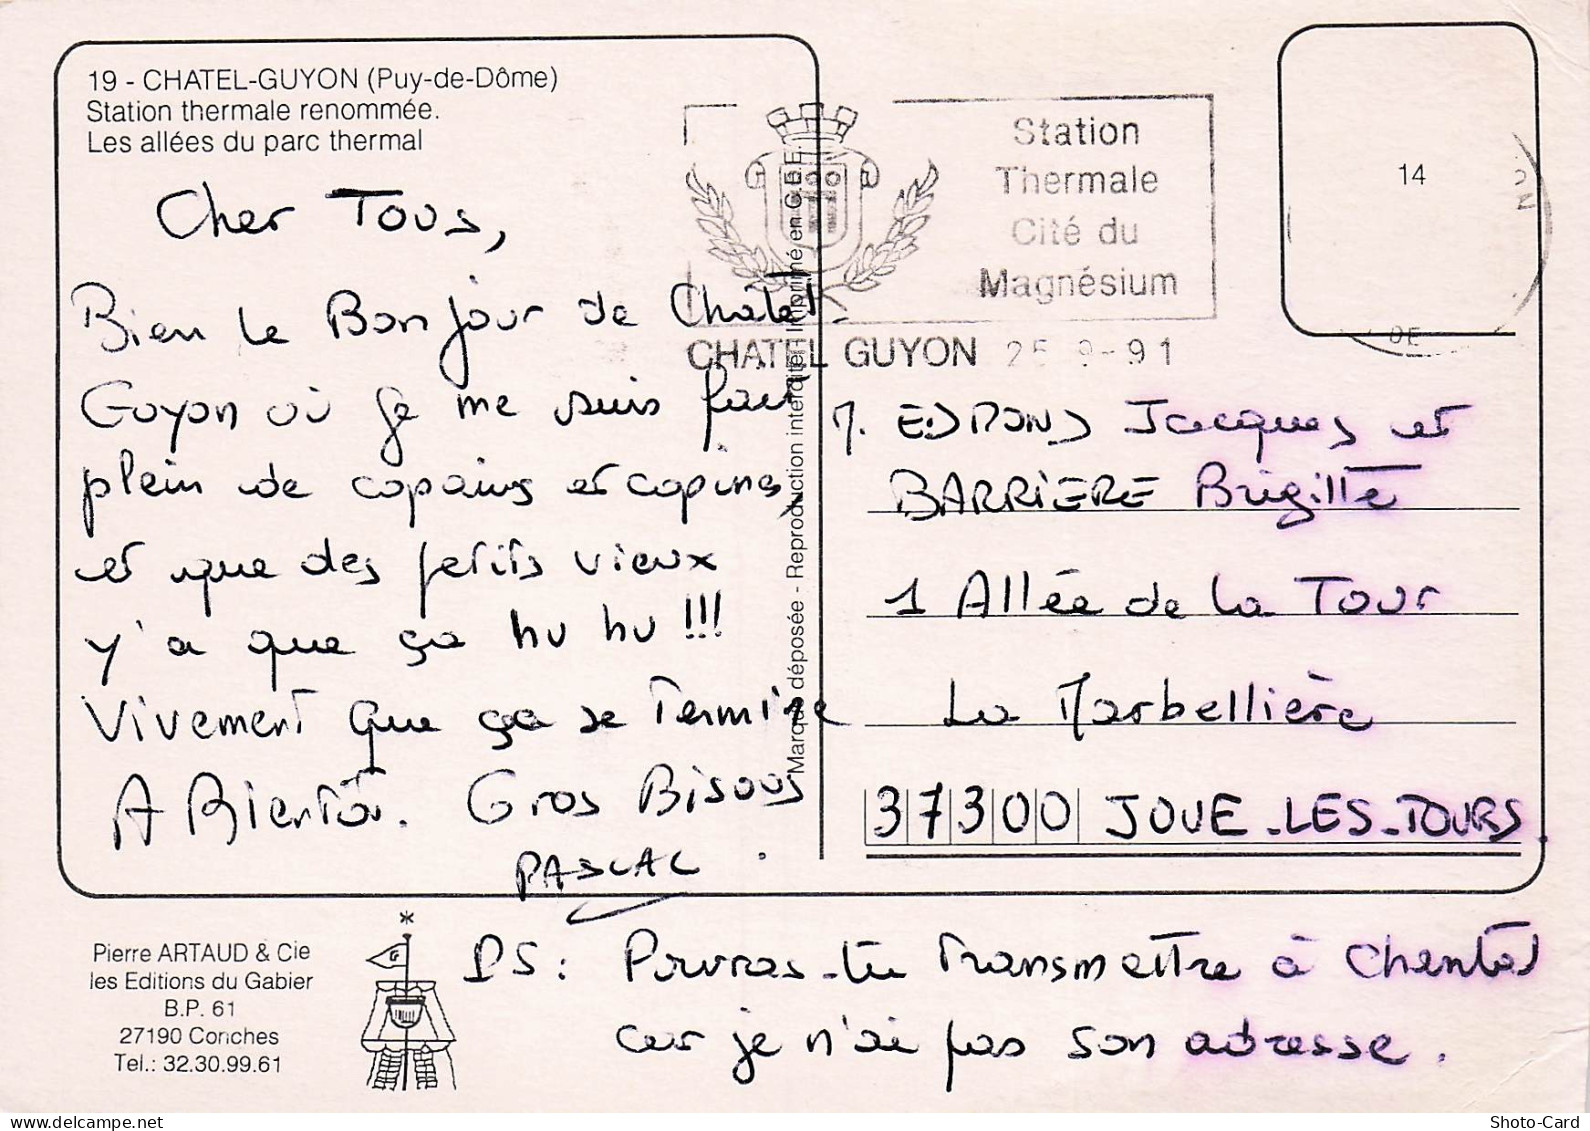 19 - CHATEL-GUYON (Puy-de-Dôme)
Station thermale renommée.
Les allées du parc thermal
Cher Tous,
Bien le Bonjour de Chatel
Guyon où je me suis fait
plein de copains et copines
et que des petits vieux
y'a que ça hu hu !!!
Vivement que ça se termine
A Bientôt. Gros Bisous
PASCAL
PS : Pourras-tu transmettre à Chantal
car je n'ai pas son adresse.
Station
Thermale
Cité du
Magnésium
CHATEL GUYON 25 9-91
14
DE
Marque déposée - Reproduction interdite. Imprimé en C.E.E.
M. Jacques et
BARRIERE Brigitte
1 Allée de la Tour
La Marbellière
37300 JOUE-LES-TOURS.
Pierre ARTAUD & Cie
les Editions du Gabier
B.P. 61
27190 Conches
Tel.: 32.30.99.61
G
Shoto-Card